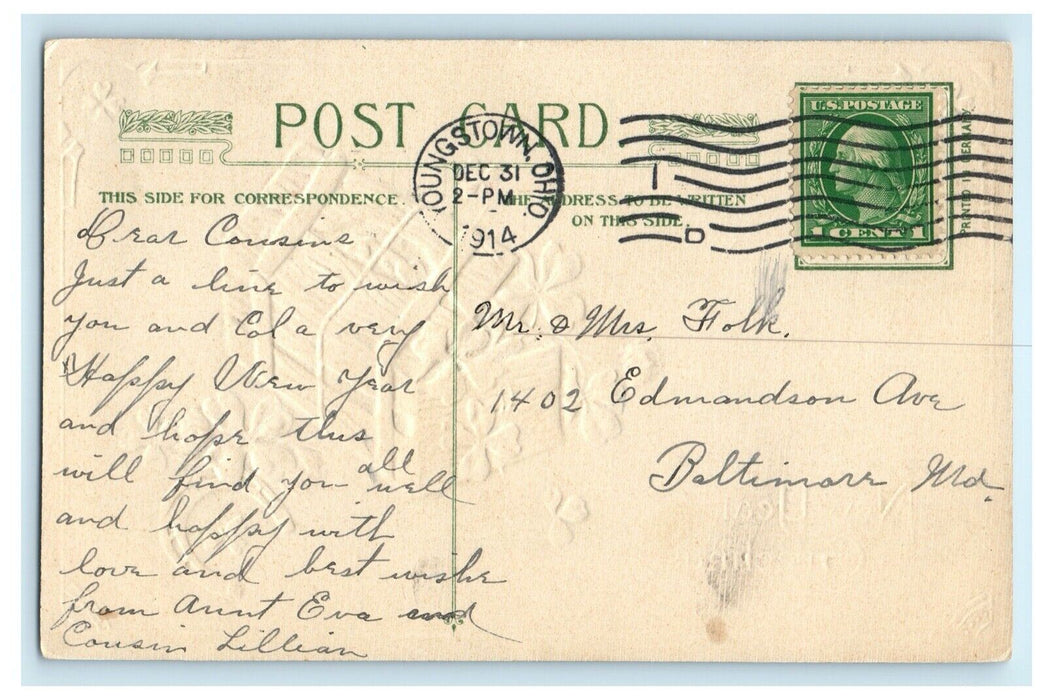 POST CARD
THIS SIDE FOR CORRESPONDENCE.
THE ADDRESS TO BE WRITTEN
ON THIS SIDE.
YOUNGSTOWN, OHIO.
DEC 31
2-PM
1914
1
D
U.S. POSTAGE
1 CENT 1
PRINTED IN GERMANY.
Dear Cousins
Just a line to wish
you and Col a very
Happy New Year
and hope this
will find you all well
and happy with
love and best wishe
from Aunt Eva and
Cousin Lillian
Mr. & Mrs. Folk.
1402 Edmandson Ave
Baltimore Md.
New Year